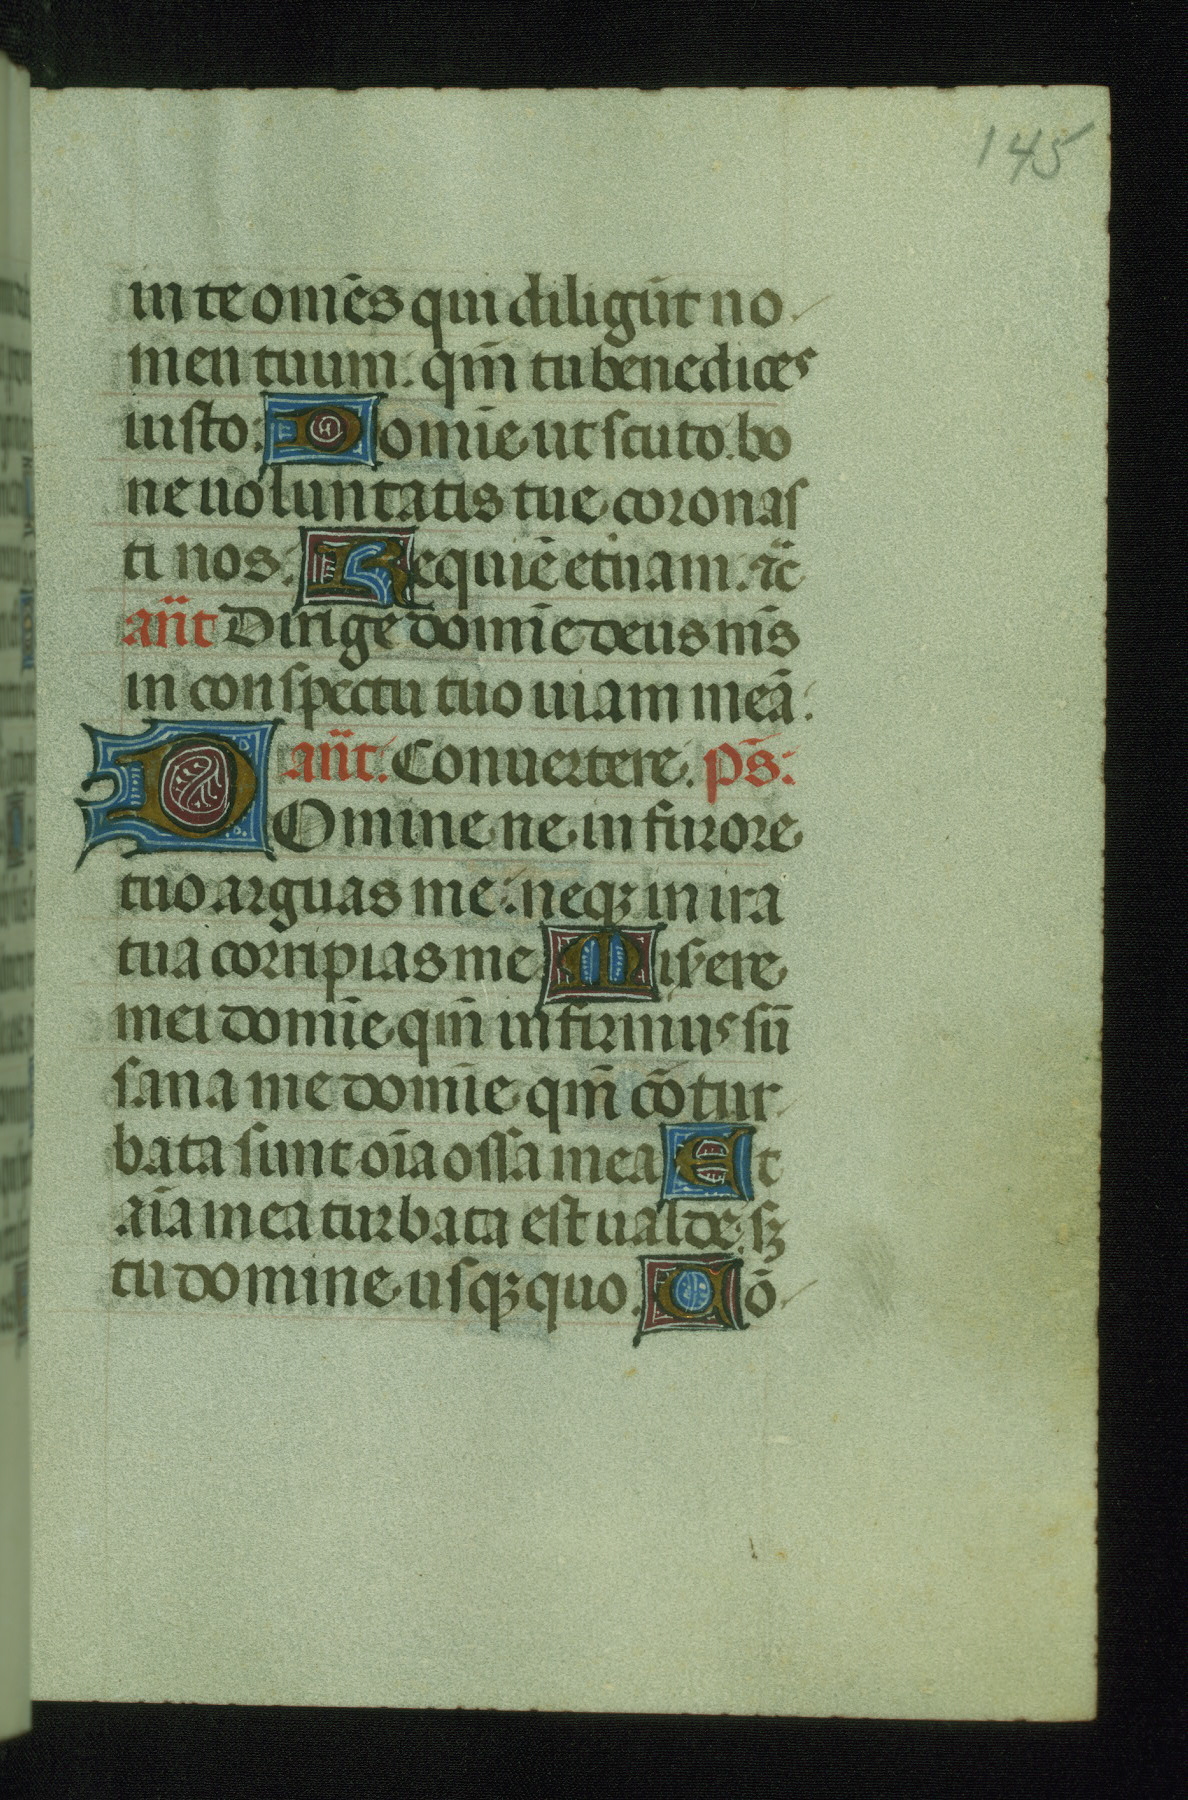 145
in te om̄es qui diligūt no
men tuum: qm̄ tu benedices
iusto: Domīe ut scuto bo
ne uoluntatis tue coronas
ti nos: Requiē et̄nam. ⁊c̄
an̄t Dirige domīe deus m̄s
in conspectu tuo uiam meā:
an̄t. Conuertere. ps̄:
DOmine ne in furore
tuo arguas me: neqꝫ in ira
tua corripias me Misere
mei domīe qm̄ infirmus sū
sana me domīe qm̄ cōtur
bata sunt oīa ossa mea Et
aīa mea turbata est ualde: sꝫ
tu domine usqꝫ quo. Cō